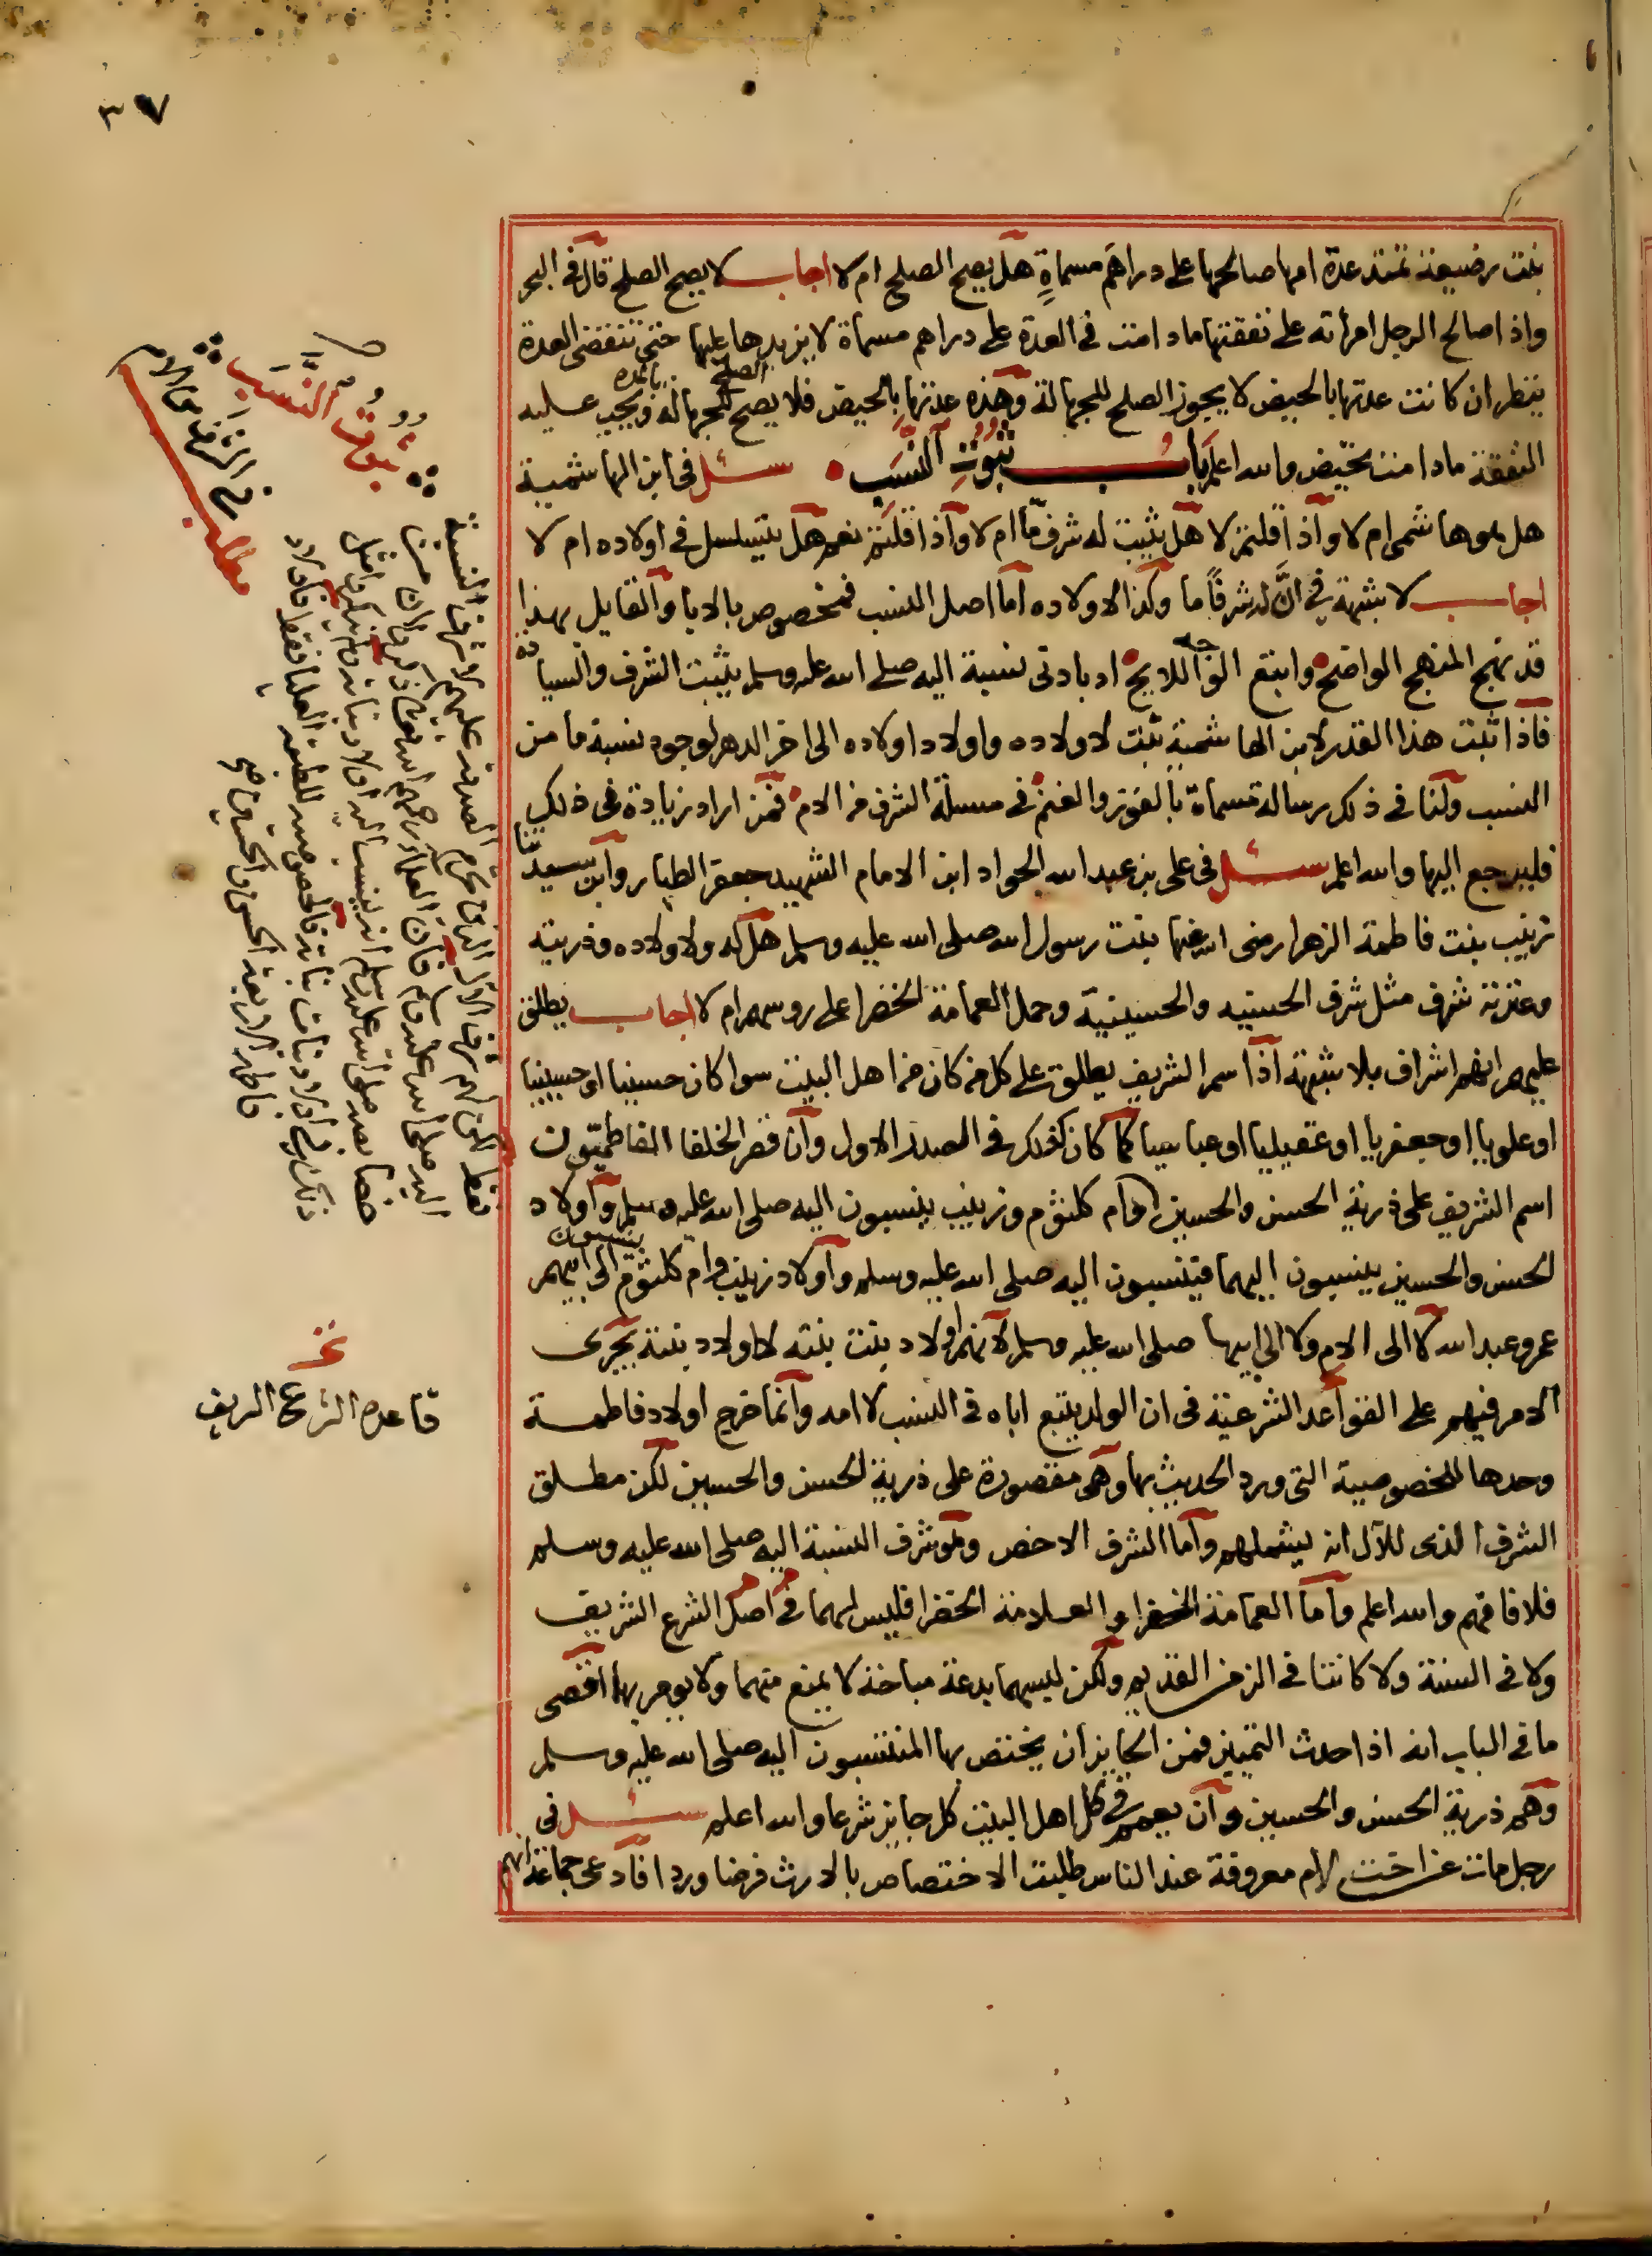 ٣٧
بنت رضيعة تمتد عدة امها صالحها على دراهم مسماة هل يصح الصلح ام لا اجاب لا يصح الصلح قال في البحر
واذ اصالح الرجل امرأته على نفقتها مادامت في العدة على دراهم مسماة لا يزيدها عليها حتى تنقضي العدة
ينظر ان كانت عدتها بالحيض لا يجوز الصلح للجهالة وهذه عدتها بالحيض فلا يصح الصلح للجهالة بالمدة ويجب عليه
النفقة مادامت تحيض والله اعلم باب ثبوت النسب سئل في ابن الهاشمية
هل هو هاشمي ام لا واذا قلتم لا هل يثبت له شرف ما ام لا واذا قلتم نعم هل يتسلسل في اولاده ام لا
اجاب لا شبهة في ان له شرفا ما وكذا لاولاده اما اصل النسب فمخصوص بالابا والقايل بهذا
قد نهج المنهج الواضح واتبع الوجه اللايح اد بادنى نسبة اليه صلى الله عليه وسلم يثبت الشرف والسيادة
فاذا ثبت هذا القدر لابن الهاشمية ثبت لاولاده واولاد اولاده الى اخر الدهر لوجود نسبة ما من
النسب ولنا في ذلك رسالة مسماة بالفوز والغنم في مسئلة الشرف من الام فمن اراد زيادة على ذلك
فليرجع اليها والله اعلم سئل في علي بن عبد الله الجواد ابن الامام الشهيد جعفر الطيار وابن سيدتنا
زينب بنت فاطمة الزهرا رضي الله عنها بنت رسول الله صلى الله عليه وسلم هل له ولاولاده وذريته
وعترته شرف مثل شرف الحسنيه والحسينية وحمل العمامة الخضرا على روسهم ام لا اجاب يطلق
عليهم انهم اشراف بلا شبهة اذا اسم الشريف يطلق على كل من كان من اهل البيت سوا كان حسنيا او حسينيا
او علويا او جعفريا او عقيليا او عباسيا كما كان كذلك في الصدر الاول وان قصر الخلفا الفاطميون
اسم الشريف على ذرية الحسن والحسين وام كلثوم وزينب ينسبون اليه صلى الله عليه وسلم واولاد
الحسن والحسين ينسبون اليهما فينسبون اليه صلى الله عليه وسلم واولاد زينب وام كلثوم ينسبون الى ابيهم
عمر وعبد الله لا الى الام ولا الى ابيها صلى الله عليه وسلم لانهم اولاد بنت بنته لا اولاد بنته يجرى
الامر فيهم على القواعد الشرعية في ان الولد يتبع اباه في النسب لا امه وانما خرج اولاد فاطمة
وحدها للخصوصية التي ورد الحديث بها وهي مقصورة على ذرية الحسن والحسين لكن مطلق
الشرف الذى للآل انه يشملهم واما الشرف الاخص وهو شرف النسبة اليه صلى الله عليه وسلم
فلا فافهم والله اعلم واما العمامة الخضرا والعلامة الخضرا فليس لهما في اصل الشرع الشريف
ولا في السنة ولا كانتا في الزمن القديم ولكن لبسهما بدعة مباحة لا يمنع منهما ولا يومر بها اقصى
ما في الباب انه اذ احدث التمييز فمن الجايز ان يختص بها المنتسبون اليه صلى الله عليه وسلم
وهم ذرية الحسن والحسين وان يعمم في كل اهل البيت كل جايز شرعا والله اعلم سئل في
رجل مات عن اخت لام معروفة عند الناس طلبت الاختصاص بالارث فرضا وردا فادعى جماعة انهم
ثبوت النسب
مطلب
في الشرف من الام
قاعدة الشرع الشريف